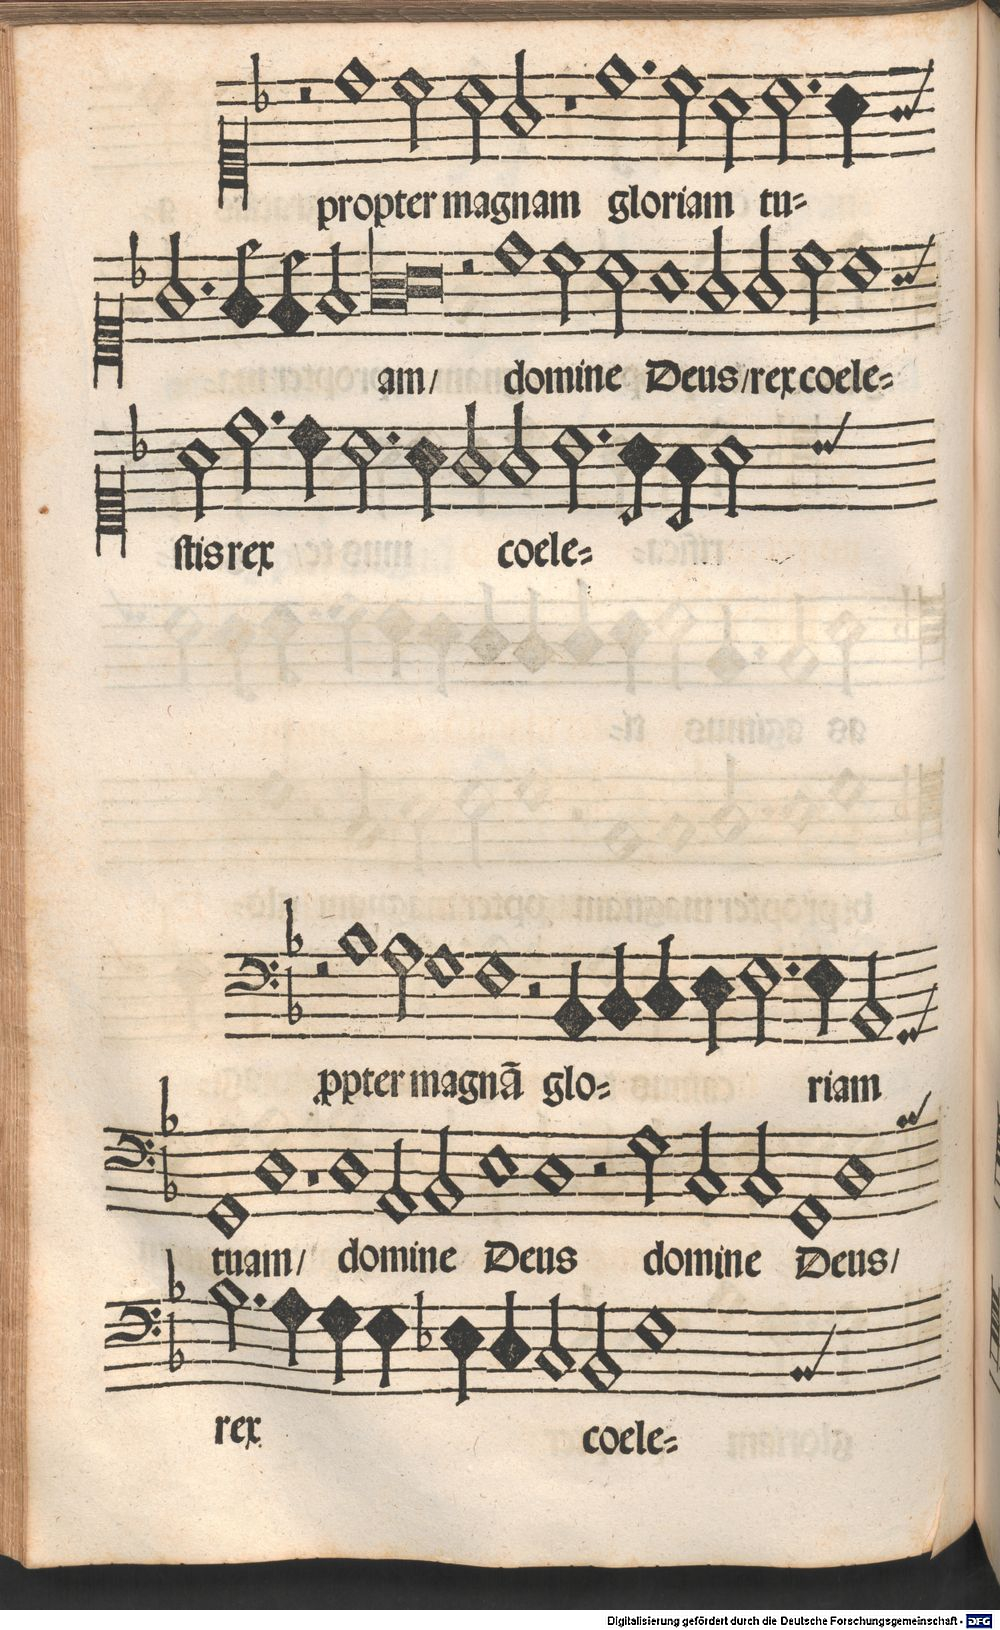 propter magnam gloriam tu=
am/ domine Deus/rex coele=
stis rex coele=
ꝓpter magnã glo= riam
tuam/ domine Deus domine Deus/
rex coele=
Digitalisierung gefördert durch die Deutsche Forschungsgemeinschaft - DFG